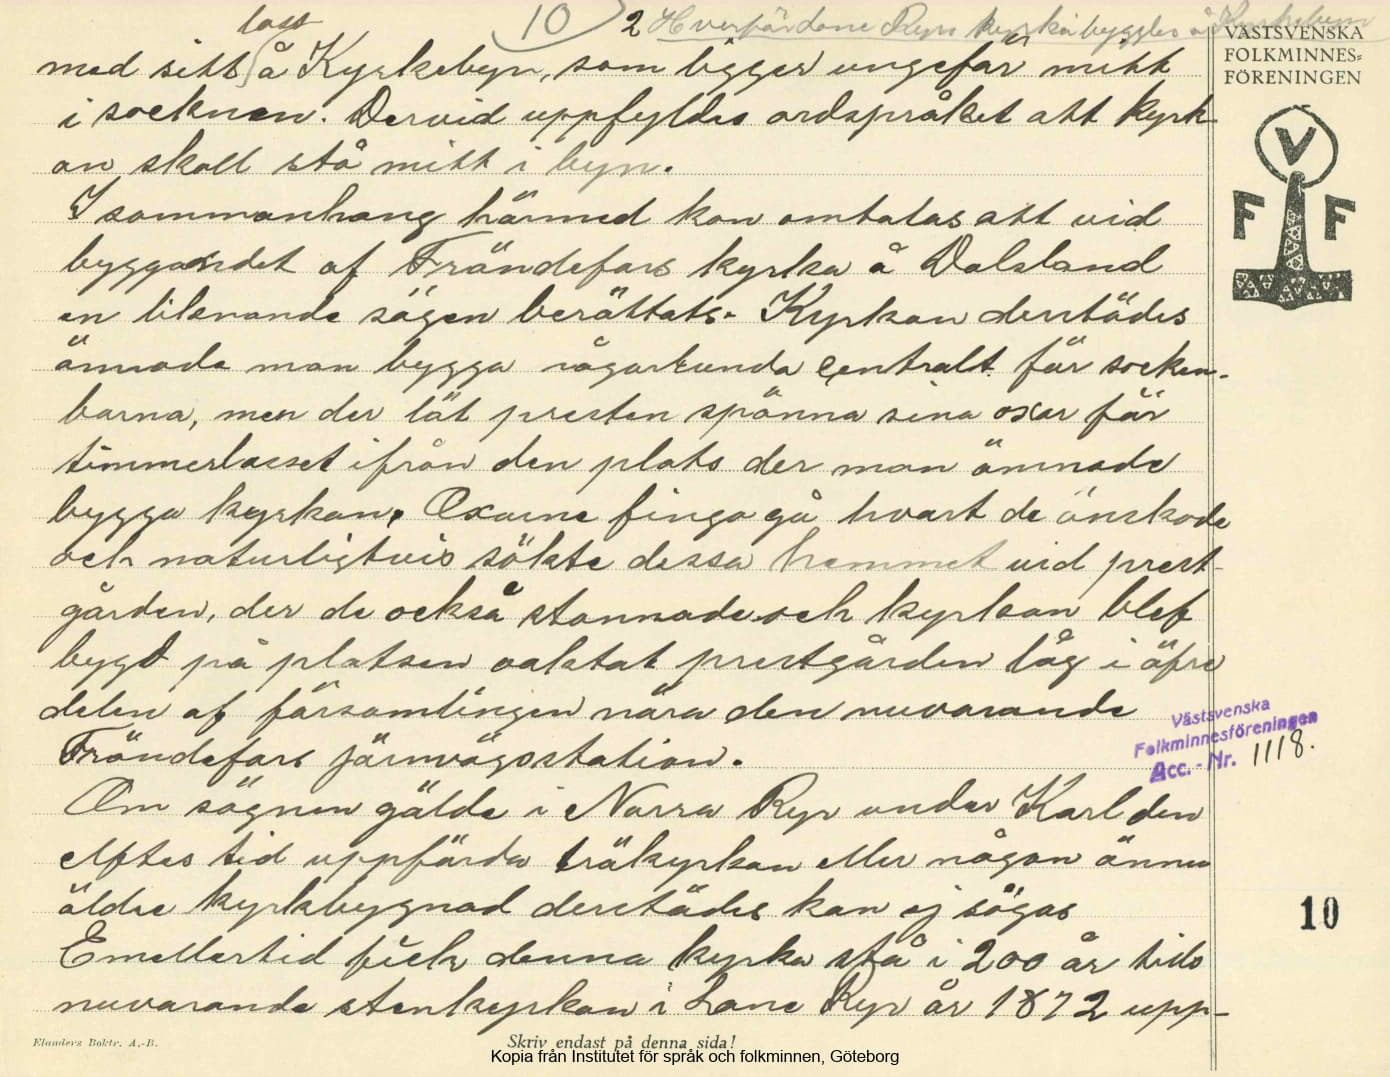 10 2 Hvarför Lane Ryrs kyrka byggdes å Kyrkebyn
VÄSTSVENSKA
FOLKMINNES=
FÖRENINGEN
V
F F
lass
med sitt å Kyrkebyn, som ligger ungefär midt
i socknen. Dervid uppfyldes ordspråket att kyrk-
an skall stå mitt i byn.
I sammanhang härmed kan omtalas att vid
byggandet af Frändefors kyrka å Dalsland
en liknande sägen berättats. Kyrkan derstädes
ämnade man bygga någorlunda centralt för socken-
barna, men der lät presten spänna sina oxar för
timmerlasset ifrån den plats der man ämnade
bygga kyrkan. Oxarne fingo gå hvart de önskade
och naturligtvis sökte dessa hemmet vid prest-
gården, der de också stannade och kyrkan blef
bygd på platsen oaktat prestgården låg i öfre
delen af församlingen nära den nuvarande
Frändefors järnvägsstation.
Västsvenska
Folkminnesföreningen
Acc. - Nr. 1118.
Om sägnen gälde i Norra Ryr under Karl den
elftes tid uppförda träkyrkan eller någon ännu
äldre kyrkbygnad derstädes kan ej sägas
10
Emellertid fick denna kyrka stå i 200 år tids
nuvarande stenkyrkan i Lane Ryr år 1872 upp-
Elanders Boktr. A.-B.
Skriv endast på denna sida!
Kopia från Institutet för språk och folkminnen, Göteborg